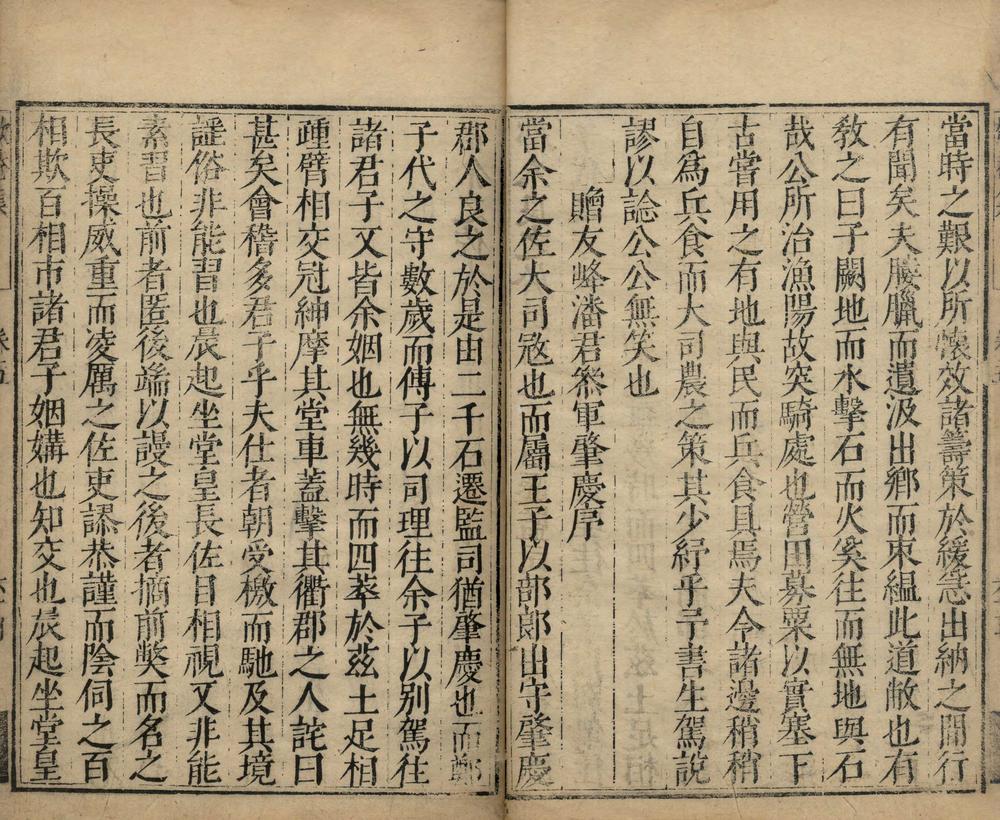 當時之艱以所懷效諸籌策於緩急出納之間行
有聞矣夫媵臘而遺汲出鄉而束縕此道敝也有
敎之曰子闕地而水擊石而火奚往而無地與石
哉公所治漁陽故突騎處也營田募粟以實塞下
古嘗用之有地與民而兵食具焉夫令諸邊稍稍
自爲兵食而大司農之策其少紓乎予書生駕說
謬以諗公公無笑也
贈友峰潘君叅軍肇慶序
當余之佐大司寇也而屬王子以部郎出守肇慶
郡人良之於是由二千石遷監司猶肇慶也而鄭
子代之守數歲而傅子以司理往余子以别駕往
諸君子又皆余姻也無幾時而四莅於茲土足相
踵臂相交冠紳摩其堂車蓋擊其衢郡之人詫曰
甚矣會稽多君子乎夫仕者朝受檄而馳及其境
謠俗非能習也晨起坐堂皇長佐目相視又非能
素習也前者匿後端以謾之後者摘前獘而名之
長吏操威重而凌厲之佐吏謬恭謹而陰伺之百
相欺百相市諸君子姻媾也知交也晨起坐堂皇